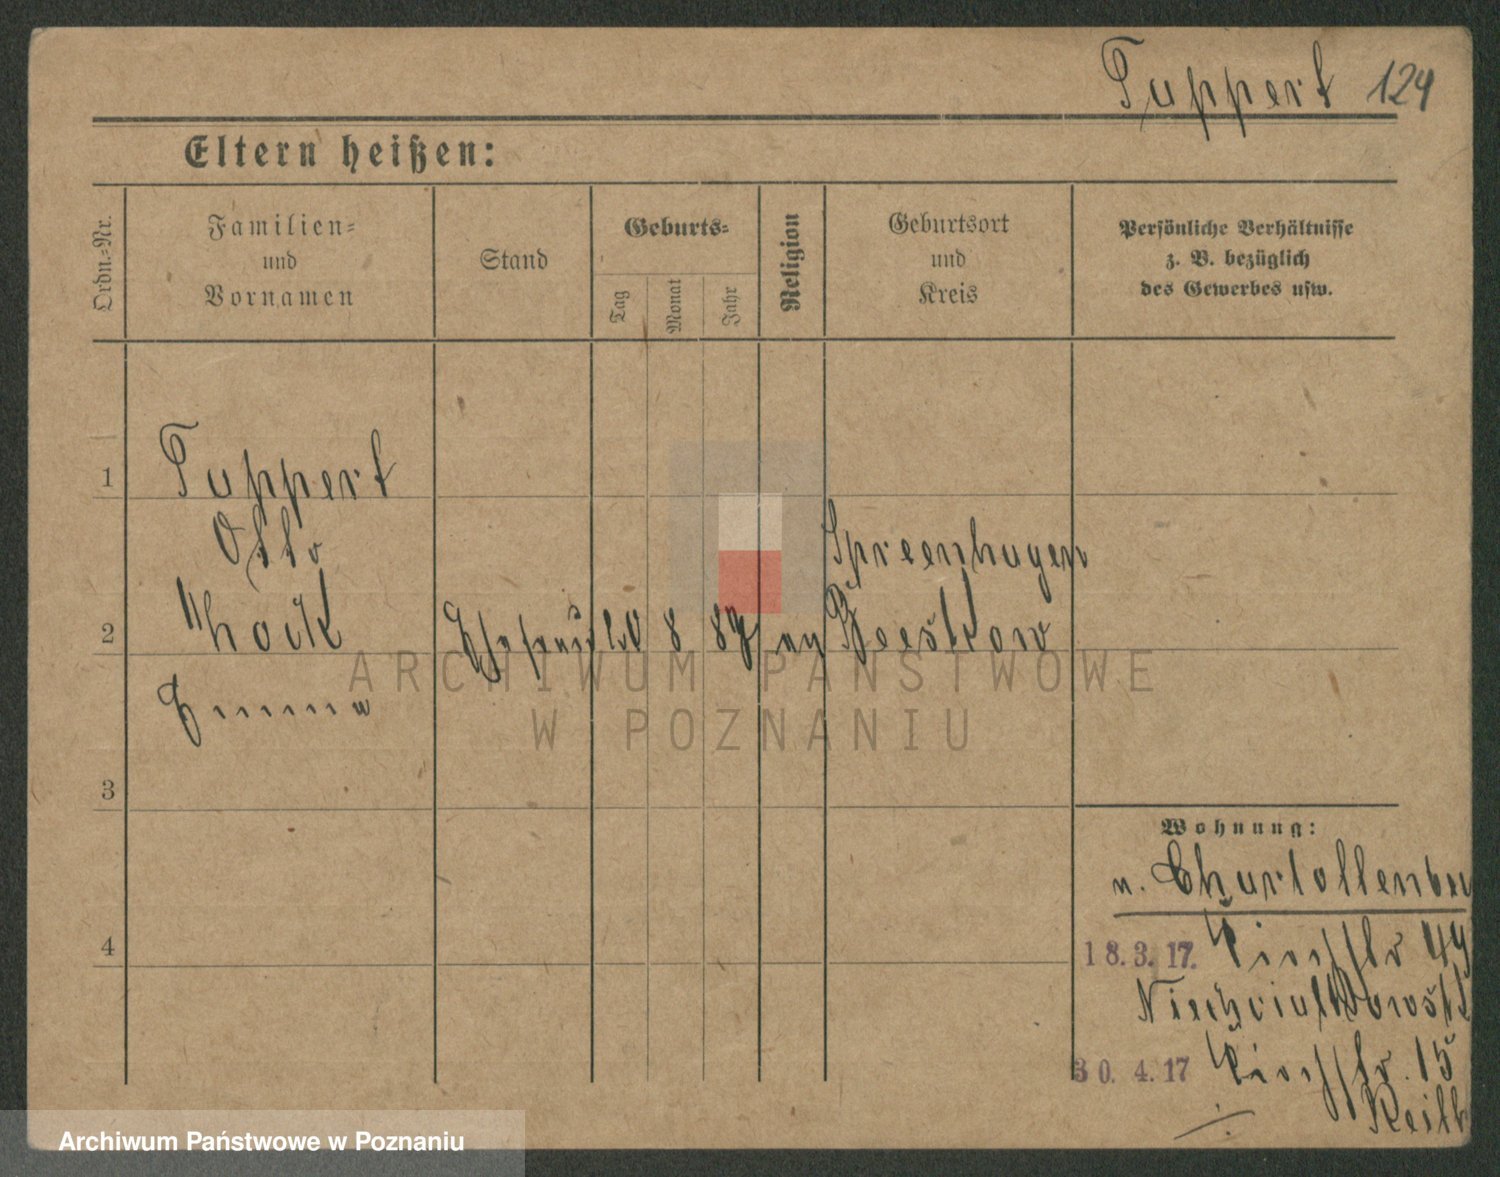 Tuppert 124
Eltern heißen:
Ordn.-Nr.
Familien-
und
Vornamen
Stand
Geburts-
Tag
Monat
Jahr
Religion
Geburtsort
und
Kreis
Persönliche Verhältnisse
z. B. bezüglich
des Gewerbes usw.
1
Tuppert
Otto
Spreenhagen
2
Ehefrau
8
87
ev
Beeskow
Emma
3
4
Wohnung:
n. Charlottenbu
18.3.17.
30.4.17
15
ARCHIWUM PAŃSTWOWE
W POZNANIU
Archiwum Państwowe w Poznaniu